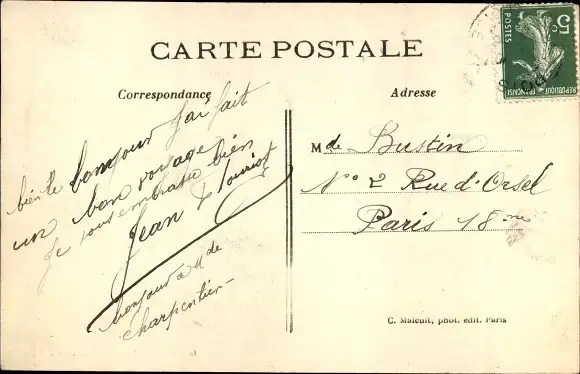 CARTE POSTALE
Correspondance
Adresse
bien le bonjour J'ai fait
un bon voyage
Je vous embrasse bien
Jean
bonjour a Mde
charpentier
Mde Bustin
N° 2 Rue d'Orsel
Paris 18me
C. Malcuit, phot. edit. Paris
5c
POSTES
REPUBLIQUE FRANÇAISE